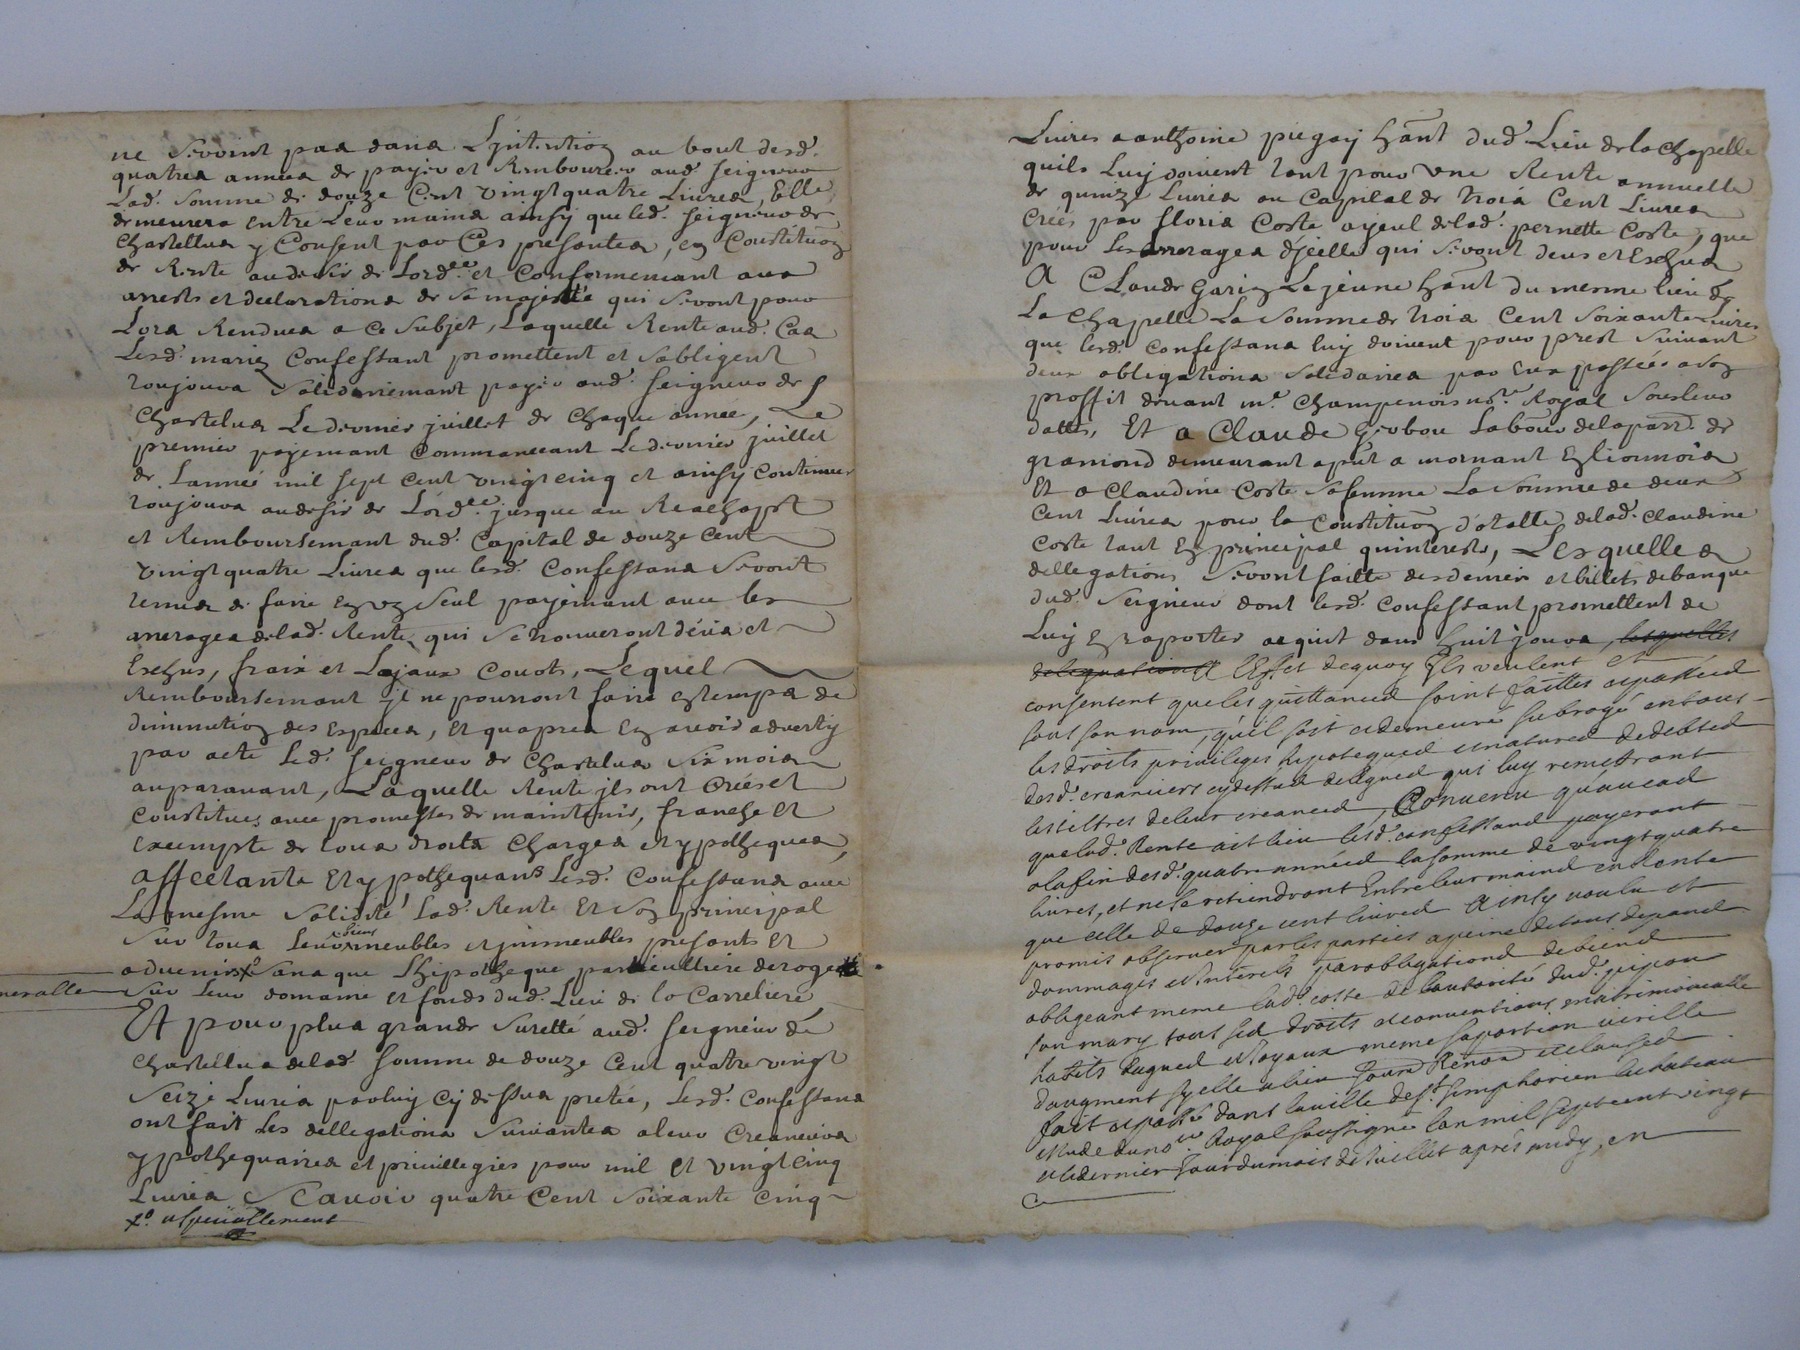 ne seroint pas dans Lintention au bout desd.
quatres années de payer et Rembourcer aud seigneur
Lad. somme de douze Cent vingt quatre Livres, Elle
demeurera entre Leur mains ainsy que led. seigneur de
Chastellus y Consent par Ces presantes, en Constitu͠on
de Rente au desir de Lord.ce et Conformement aux
arrests et declarations de sa majesté qui seront pour
Lors Rendues a ce subjet, Laquelle Rente aud. Cas
Lesd. mariez Confessant promettent et sobligent
toujours solidairemant payer aud. seigneur de
Chastelus Le dernier juillet de Chaque année, Le
premier payemant Commancant Le dernier juillet
de Lanné mil sept cent vingt cinq et ainsy continuer
toujours au desir de Lord.ce jusque au Reachapt
et Remboursemant dud. Capital de douze Cent
vingt quatre Livres que lesd. Confessans seront
tenus de faire en un seul payemant avec les
arrerages delad. Rente qui se trouveront deües et
Eschus, fraix et Loyaux Couts, Lequel
Remboursemant ils ne pourront faire en temps de
diminution des Especes, et quapres En avoir adverty
par acte Led. seigneur de Chastelus six mois
auparavant, Laquelle Rente ils ont Créés et
Constitues avec promesses de maintenir, franche et
Exempte de tous droits Charges et ypotheques,
affectants Et ypothequans Lesd. Confessans avec
La mesme solidité Lad. Rente Et son principal
sur tous Leurs biens meubles et jmmeubles presants et
advenir xo sans que Lhipotheque particulliere deroge
neralle sur Leur domaine et fonds dud. Lieu de la Carreliere
Et pour plus grande suretté aud. seigneur de
Chastellus delad. somme de douze Cent quatre vingt
seize Livres parluy Cy dessus pretée, Lesd. Confessans
ont fait Les dellegations suivantes a leur Creanciers
ypothequaires et privillegiés pour mil et vingt cinq
Livres Scavoir quatre Cent soixante Cinq
xo. et specialement
Livres a anthoine piegay ha͠nt dud. Lieu de la Chapelle
quils Luy doivent tant pour une Rente annuelle
de quinze Livres au Capital de trois Cent Livres
Créés par floris Coste ayeul delad. pernette Coste, que
pour Les arrerages djcelle qui seront deus et Eschus
A Claude Garin Le jeune ha͠nt du mesme lieu de
La Chapelle La somme de trois Cent soixante Livres
que lesd. Confessans luy doivent pour prest suivant
deux obligations solidaires par eux passées a son
proffit devant m.e Champenois no.re Royal sous leur
dattes, Et a Claude Gerbou Laboür de la parr. de
gramond demeurant a pn͠t a mornant En lionnois
Et a Claudine Coste sa femme La somme de deux
Cent Livres pour la Constitu͠on dotalle delad. Claudine
Coste tant En principal quinterests, Lesquelles
dellegations seront faitte des deniers et billets de banque
dud. Seigneur dont lesd. Confessant promettent de
Luy En raporter acquit dans huit jours, lesquelles
delegations A l'Efet dequoy Ils veulent et
consentent que les quittances soint faittes et passées
sous son nom, qu'il soit et demeure subrogé en tous
les droits privileges hipoteques et natures de debtes
desd. creanciers cy dessus delegués qui luy remettront
les tiltres de leur creances, Convenu qu'au cas
que lad. Rente ait lieu lesd. confessans payeront
a la fin desd. quatre années la somme de vingt quatre
livres, et ne se retiendront Entre leur mains en Rente
que celle de douze cent livres Ainsy voulu et
promis observer par les parties a peine de tous depans
dommages et Interets par obligations de biens
obligeant meme lad. coste de l'autorité dud. pipon
son mary tous ses droits et conventions matrimonialle
habits bagues et Joyaux meme sa portion virille
d'augment sy elle a lieu sous Renon et clauses
fait et passé dans la ville de S.t simphorien le chateau
etude du no.re Royal soussigné l'an mil sept cent vingt
et le dernier jour du mois de Juillet après midy, en